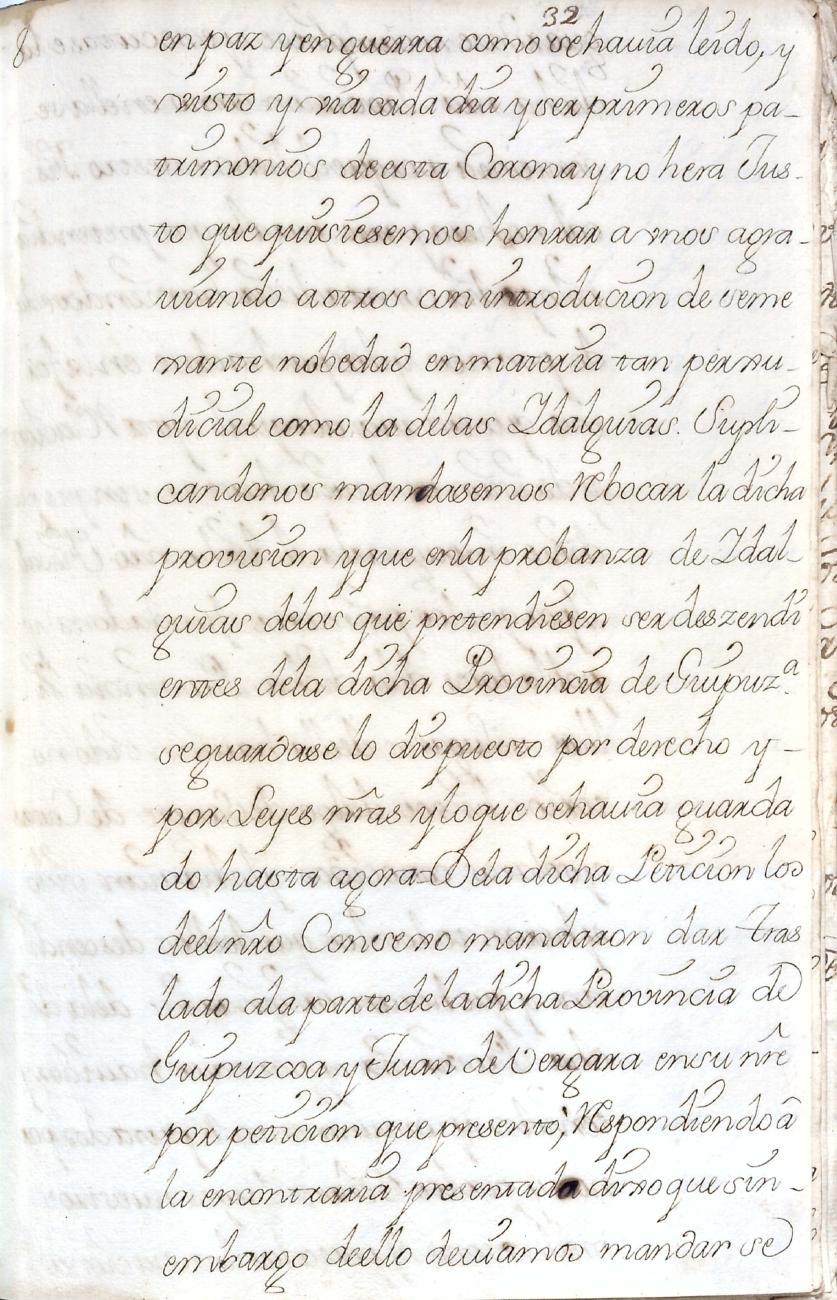 32
8
en paz y en guerra como se havia leido, y
visto y via cada dia y ser primeros pa-
trimonios de esta Corona y no hera Jus-
to que quisiesemos honrar a vnos agra-
uiando a otros con introducion de seme
xante nobedad en materia tan perxu-
dicial como la delas Idalguias. Supli-
candonos mandasemos Rebocar la dicha
provision y que enla probanza de Idal-
guias delos que pretendiesen ser deszendi
entes dela dicha Provincia de Guipuz.ª
se guardase lo dispuesto por derecho y-
por Leyes nr̃as y lo que se havia guarda
do hasta agora= Dela dicha Peticion los
deel nr̃o Consexo mandaron dar tras
lado ala parte de la dicha Provincia de
Guipuzcoa y Juan de Vergara en su nr̃e
por peticion que presentò, Respondiendo â
la encontraria presentada dixo que sin-
embargo deello deuiamos mandar se